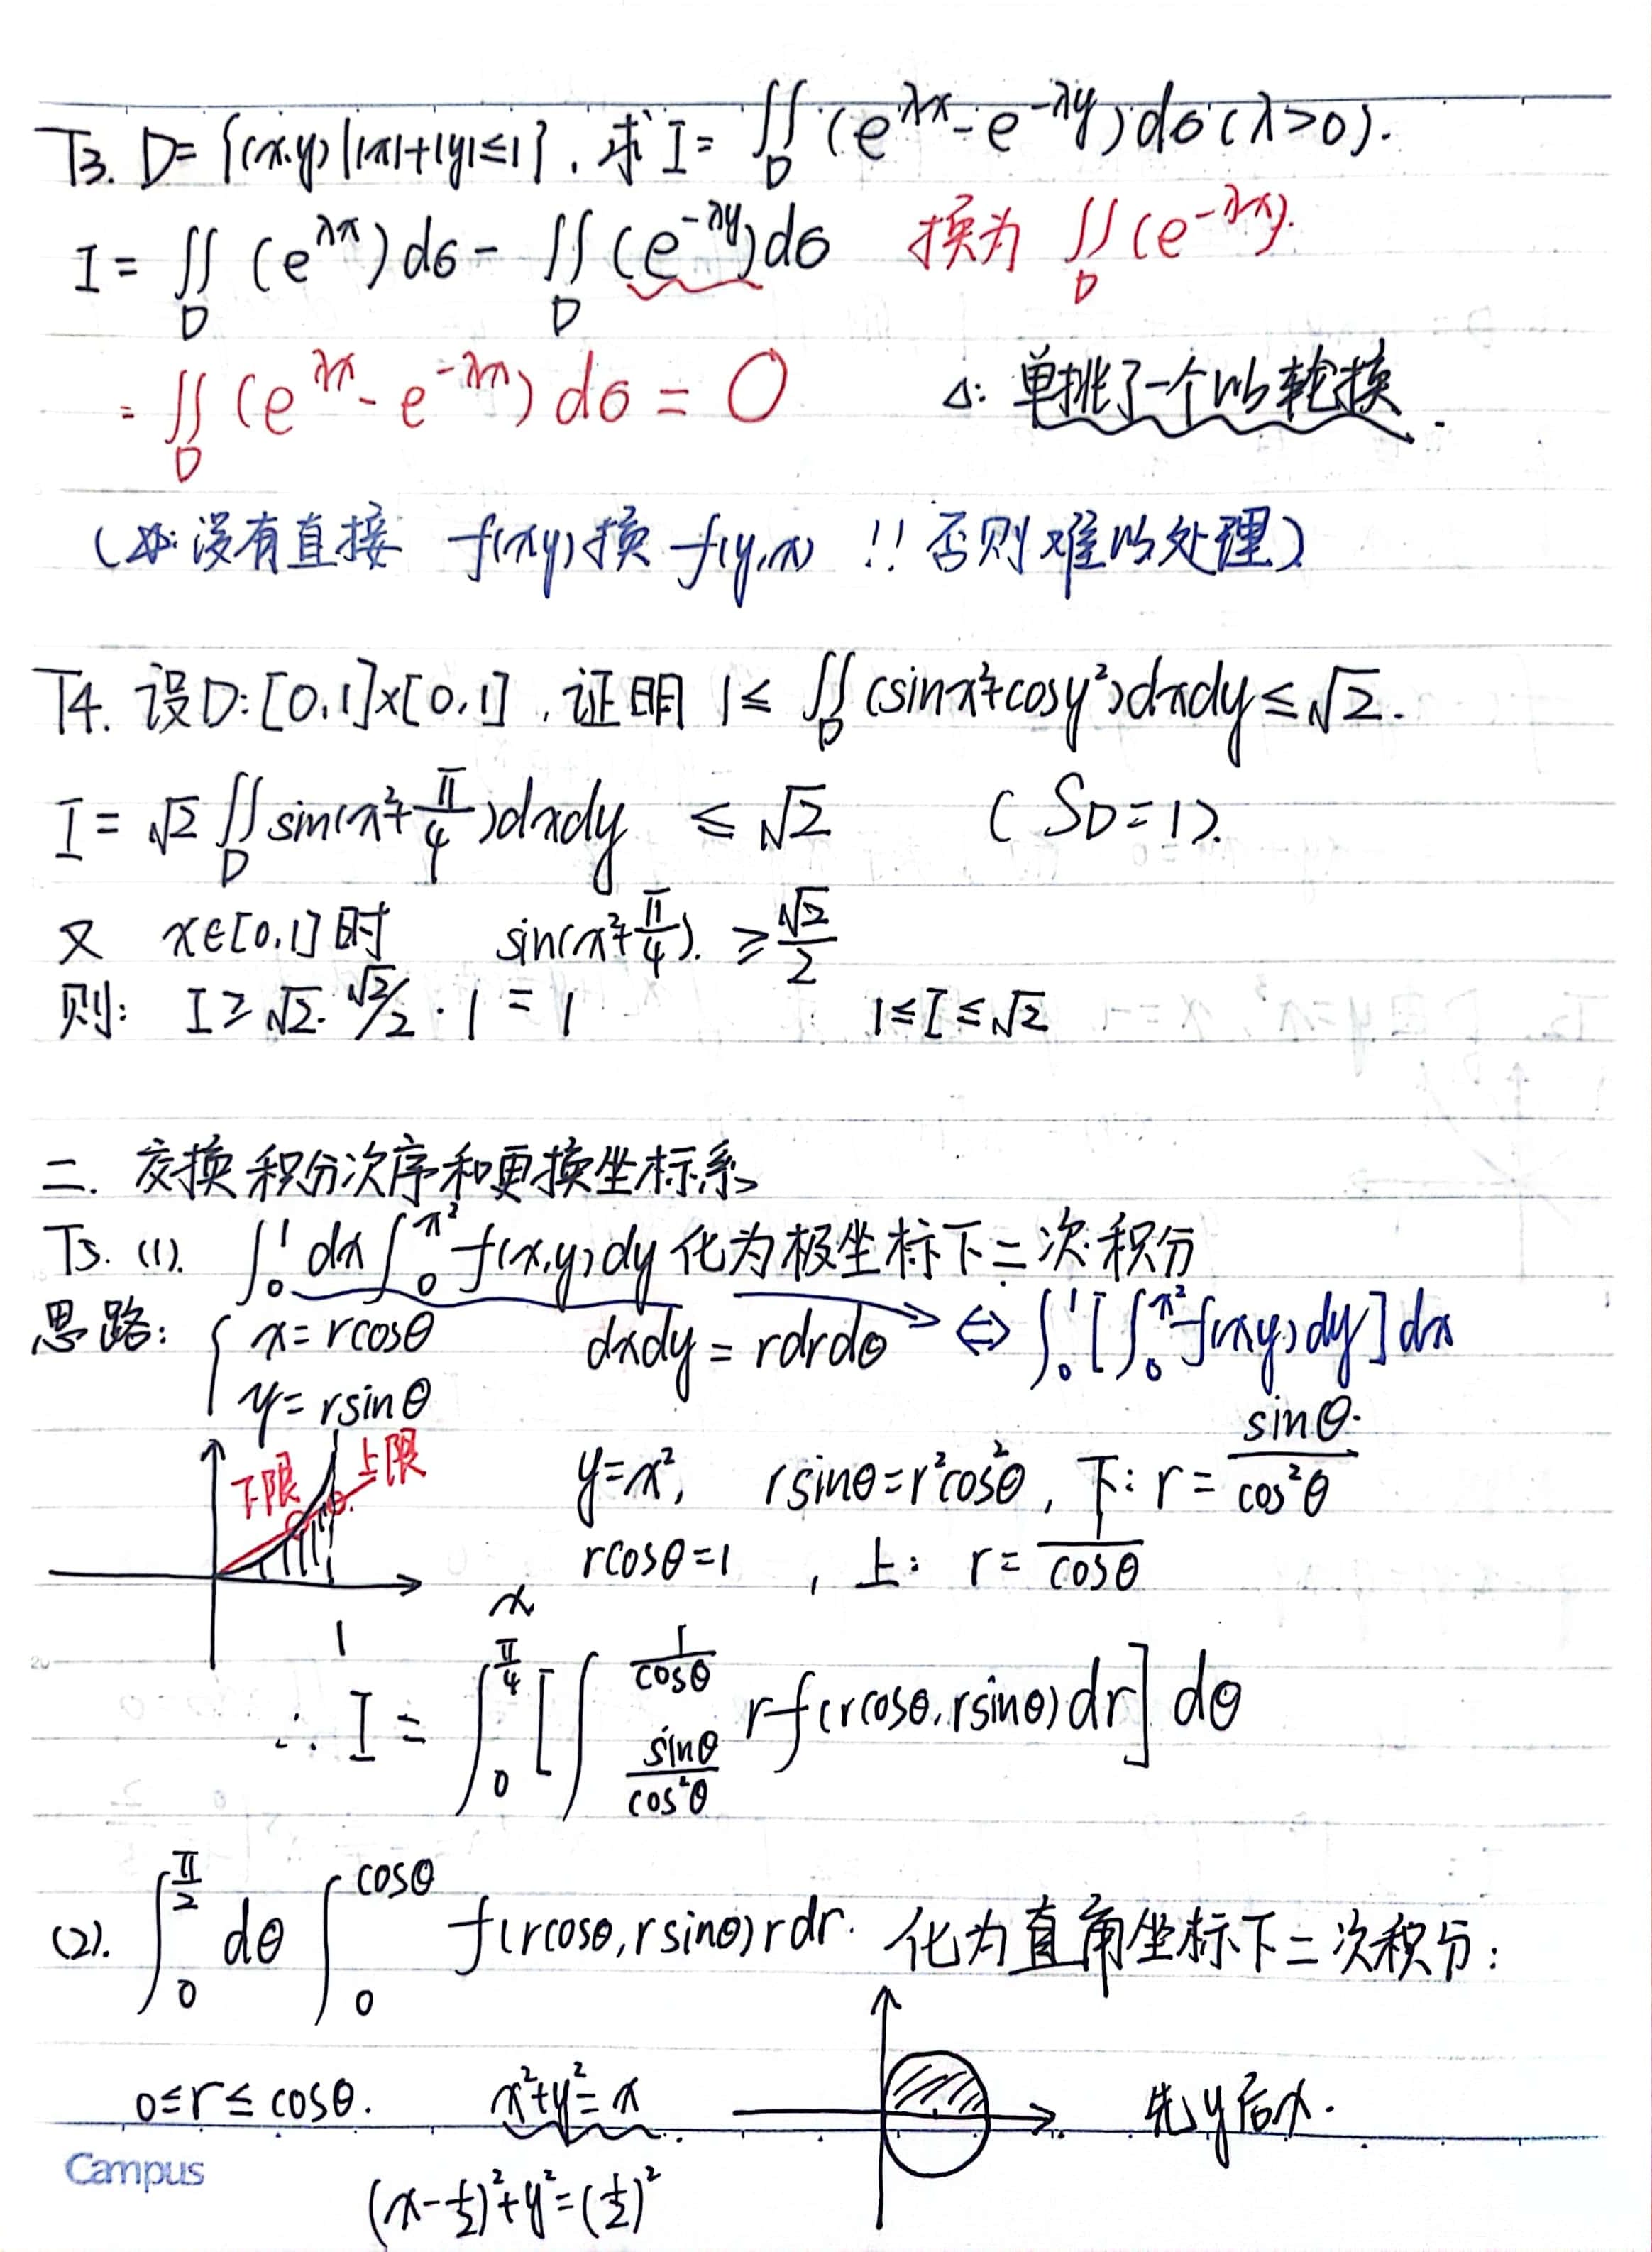 T3. D={(x,y)||x|+|y|≤1}, 求 I=∬_D (e^{λx}-e^{-λy})dσ(λ>0).
I=∬_D (e^{λx})dσ-∬_D (e^{-λy})dσ 换为 ∬_D (e^{-λx}).
=∬_D (e^{λx}-e^{-λx})dσ=0 △: 单挑了一个以轮换.
(没有直接 f(xy)换 f(y,x) !! 否则难以处理)
T4. 设D:[0,1]×[0,1], 证明 1≤∬_D (sinx²+cosy²)dxdy≤√2.
I=√2∬_D sin(x²+π/4)dxdy ≤√2 (S_D=1).
又 x∈[0,1]时 sin(x²+π/4). ≥√2/2
则: I≥√2·√2/2·1=1 1≤I≤√2
二. 交换积分次序和更换坐标系
T5. (1). ∫_0^1 dx∫_0^{x²} f(x,y)dy 化为极坐标下二次积分
思路: { x=rcosθ dxdy=rdrdθ ⇔ ∫_0^1[∫_0^{x²} f(xy)dy]dx
y=rsinθ
下限 上限 y=x², rsinθ=r²cos²θ, 下: r=sinθ/cos²θ
rcosθ=1 , 上: r=1/cosθ
x
1
∴ I=∫_0^{π/4}[∫_{sinθ/cos²θ}^{1/cosθ} rf(rcosθ,rsinθ)dr]dθ
(2). ∫_0^{π/2} dθ∫_0^{cosθ} f(rcosθ,rsinθ)rdr. 化为直角坐标下二次积分:
0≤r≤cosθ. x²+y²=x. 先y后x.
Campus
(x-1/2)²+y²=(1/2)²